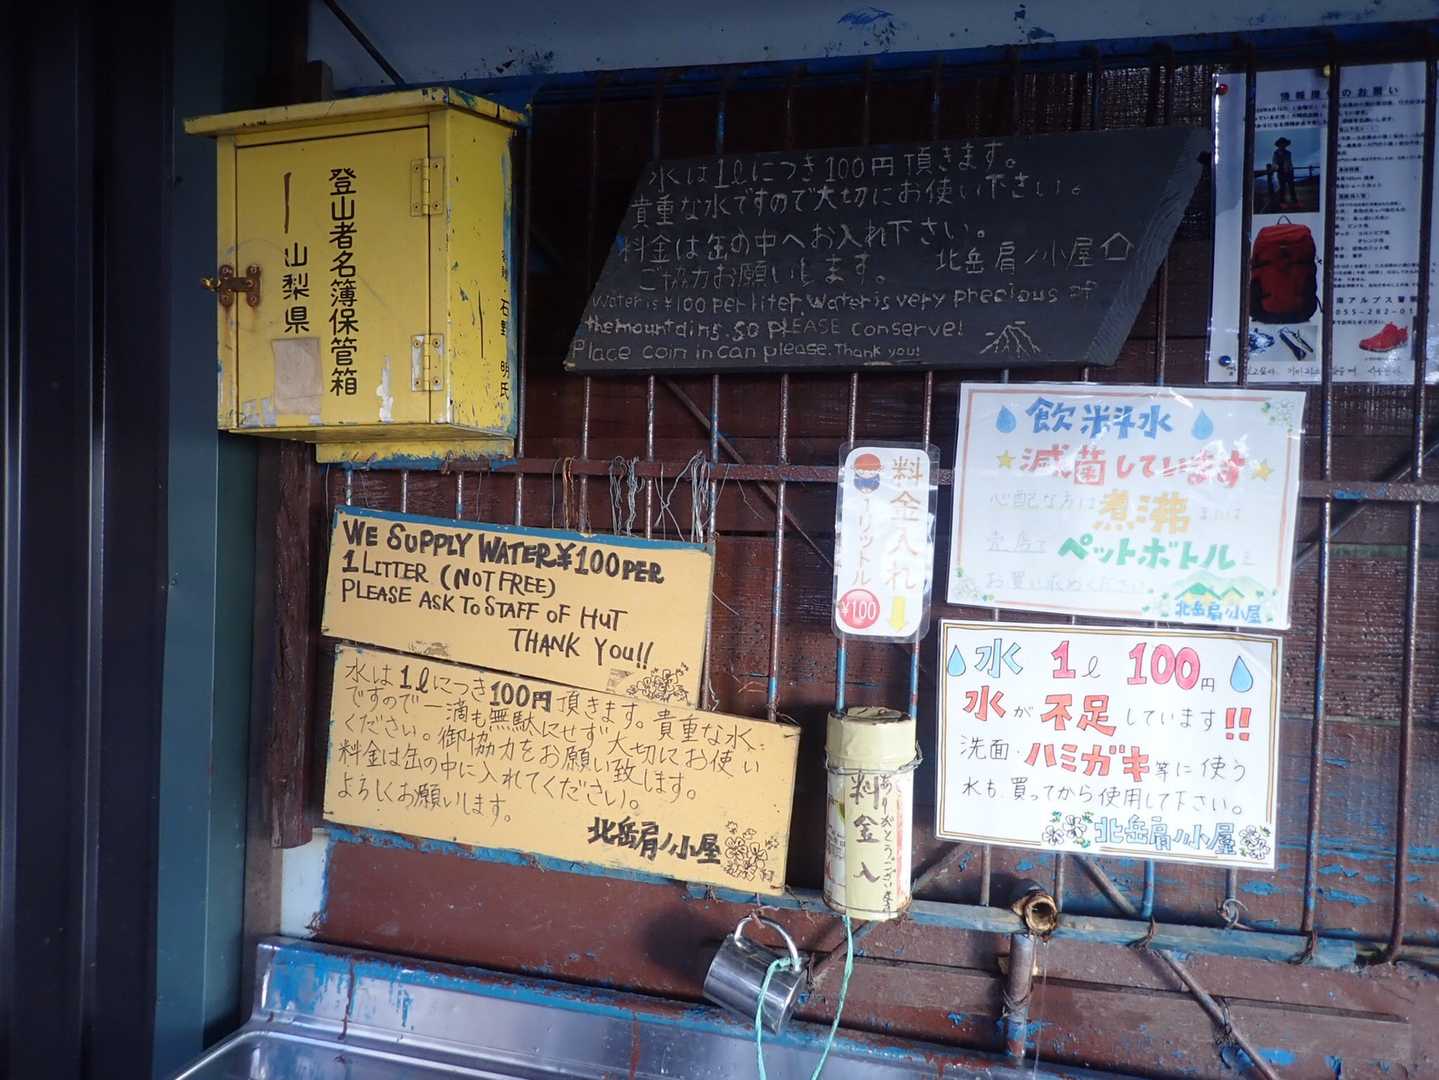 登山者名簿保管箱
山梨県
石野 明氏
水は1ℓにつき100円頂きます。
貴重な水ですので大切にお使い下さい。
料金は缶の中へお入れ下さい。
ご協力お願いします。 北岳肩ノ小屋
Water is ¥100 per liter. Water is very precious of
the mountains. so PLEASE conserve!
Place coin in can please. Thank you!
WE SUPPLY WATER ¥100 PER
1 LITTER (NOT FREE)
PLEASE ASK TO STAFF OF HUT
THANK YOU!!
水は1ℓにつき100円頂きます。貴重な水
ですので一滴も無駄にせず大切にお使い
ください。御協力をお願い致します。
料金は缶の中に入れてください。
よろしくお願いします。
北岳肩ノ小屋
料金入れ
1リットル
¥100
料金入
ありがとうございます
飲料水
減菌しています
心配な方は煮沸または
売店でペットボトルを
お買い求めください
北岳肩ノ小屋
水 1ℓ 100円
水が不足しています!!
洗面・ハミガキ等に使う
水も買ってから使用して下さい。
北岳肩ノ小屋
情報提供のお願い